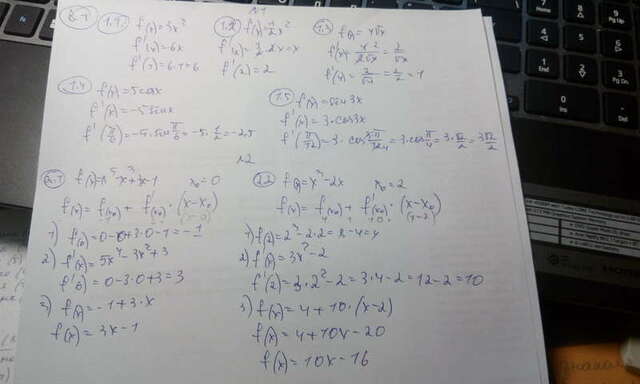 В.1 1.1 f(x)=3x²
f'(x)=6x
f'(1)=6·1=6
1.2 f(x)=1/2x²
f'(x)=1/2·2x=x
f'(2)=2
1.3 f(x)=4√x
f'(x)=4/2√x=2/√x
1.4 f(x)=5cosx
f'(x)=-5sinx
f'(π/6)=-5·sinπ/6=-5·1/2=-2,5
1.5 f(x)=sin3x
f'(x)=3·cos3x
f'(π/12)=3·cos3π/12=3·cosπ/4=3·√2/2=3√2/2
№2
x₀=0
f(x)=f(x₀)+f'(x₀)·(x-x₀)
1) f(0)=0-0+3·0-1=-1
2) f'(x)=5x⁴-3x²+3
f'(0)=0-3·0+3=3
f(x)=-1+3·x
f(x)=3x-1
2.2 f(x)=x³-2x x₀=2
f(x)=f(x₀)+f'(x₀)·(x-x₀)
1) f(2)=2³-2·2=8-4=4
2) f'(x)=3x²-2
f'(2)=3·2²-2=3·4-2=12-2=10
3) f(x)=4+10·(x-2)
f(x)=4+10x-20
f(x)=10x-16